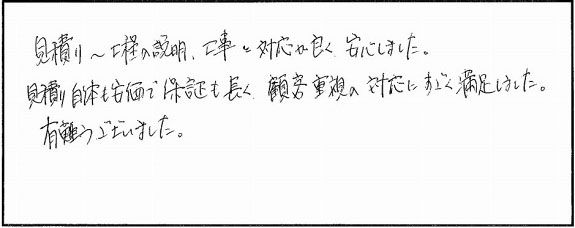 見積り～工程の説明、工事と対応が良く安心しました。
見積り自体も安価で保証も長く、顧客重視の対応にすごく満足しました。
有難うございました。